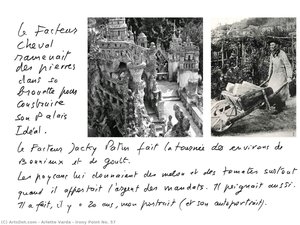 Le Facteur
Cheval
ramenait
des pierres
dans sa
brouette pour
construire
son Palais
Idéal.
Le Facteur Jacky Patin fait la tournée des environs de
Bonnieux et de Goult.
Les paysans lui donnaient des melons et des tomates surtout
quand il apportait l'argent des mandats. Il peignait aussi.
Il a fait, il y a 20 ans, mon portrait (et son autoportrait).
(C) ArtsDot.com - Arlette Varda - Irony Point No. 57